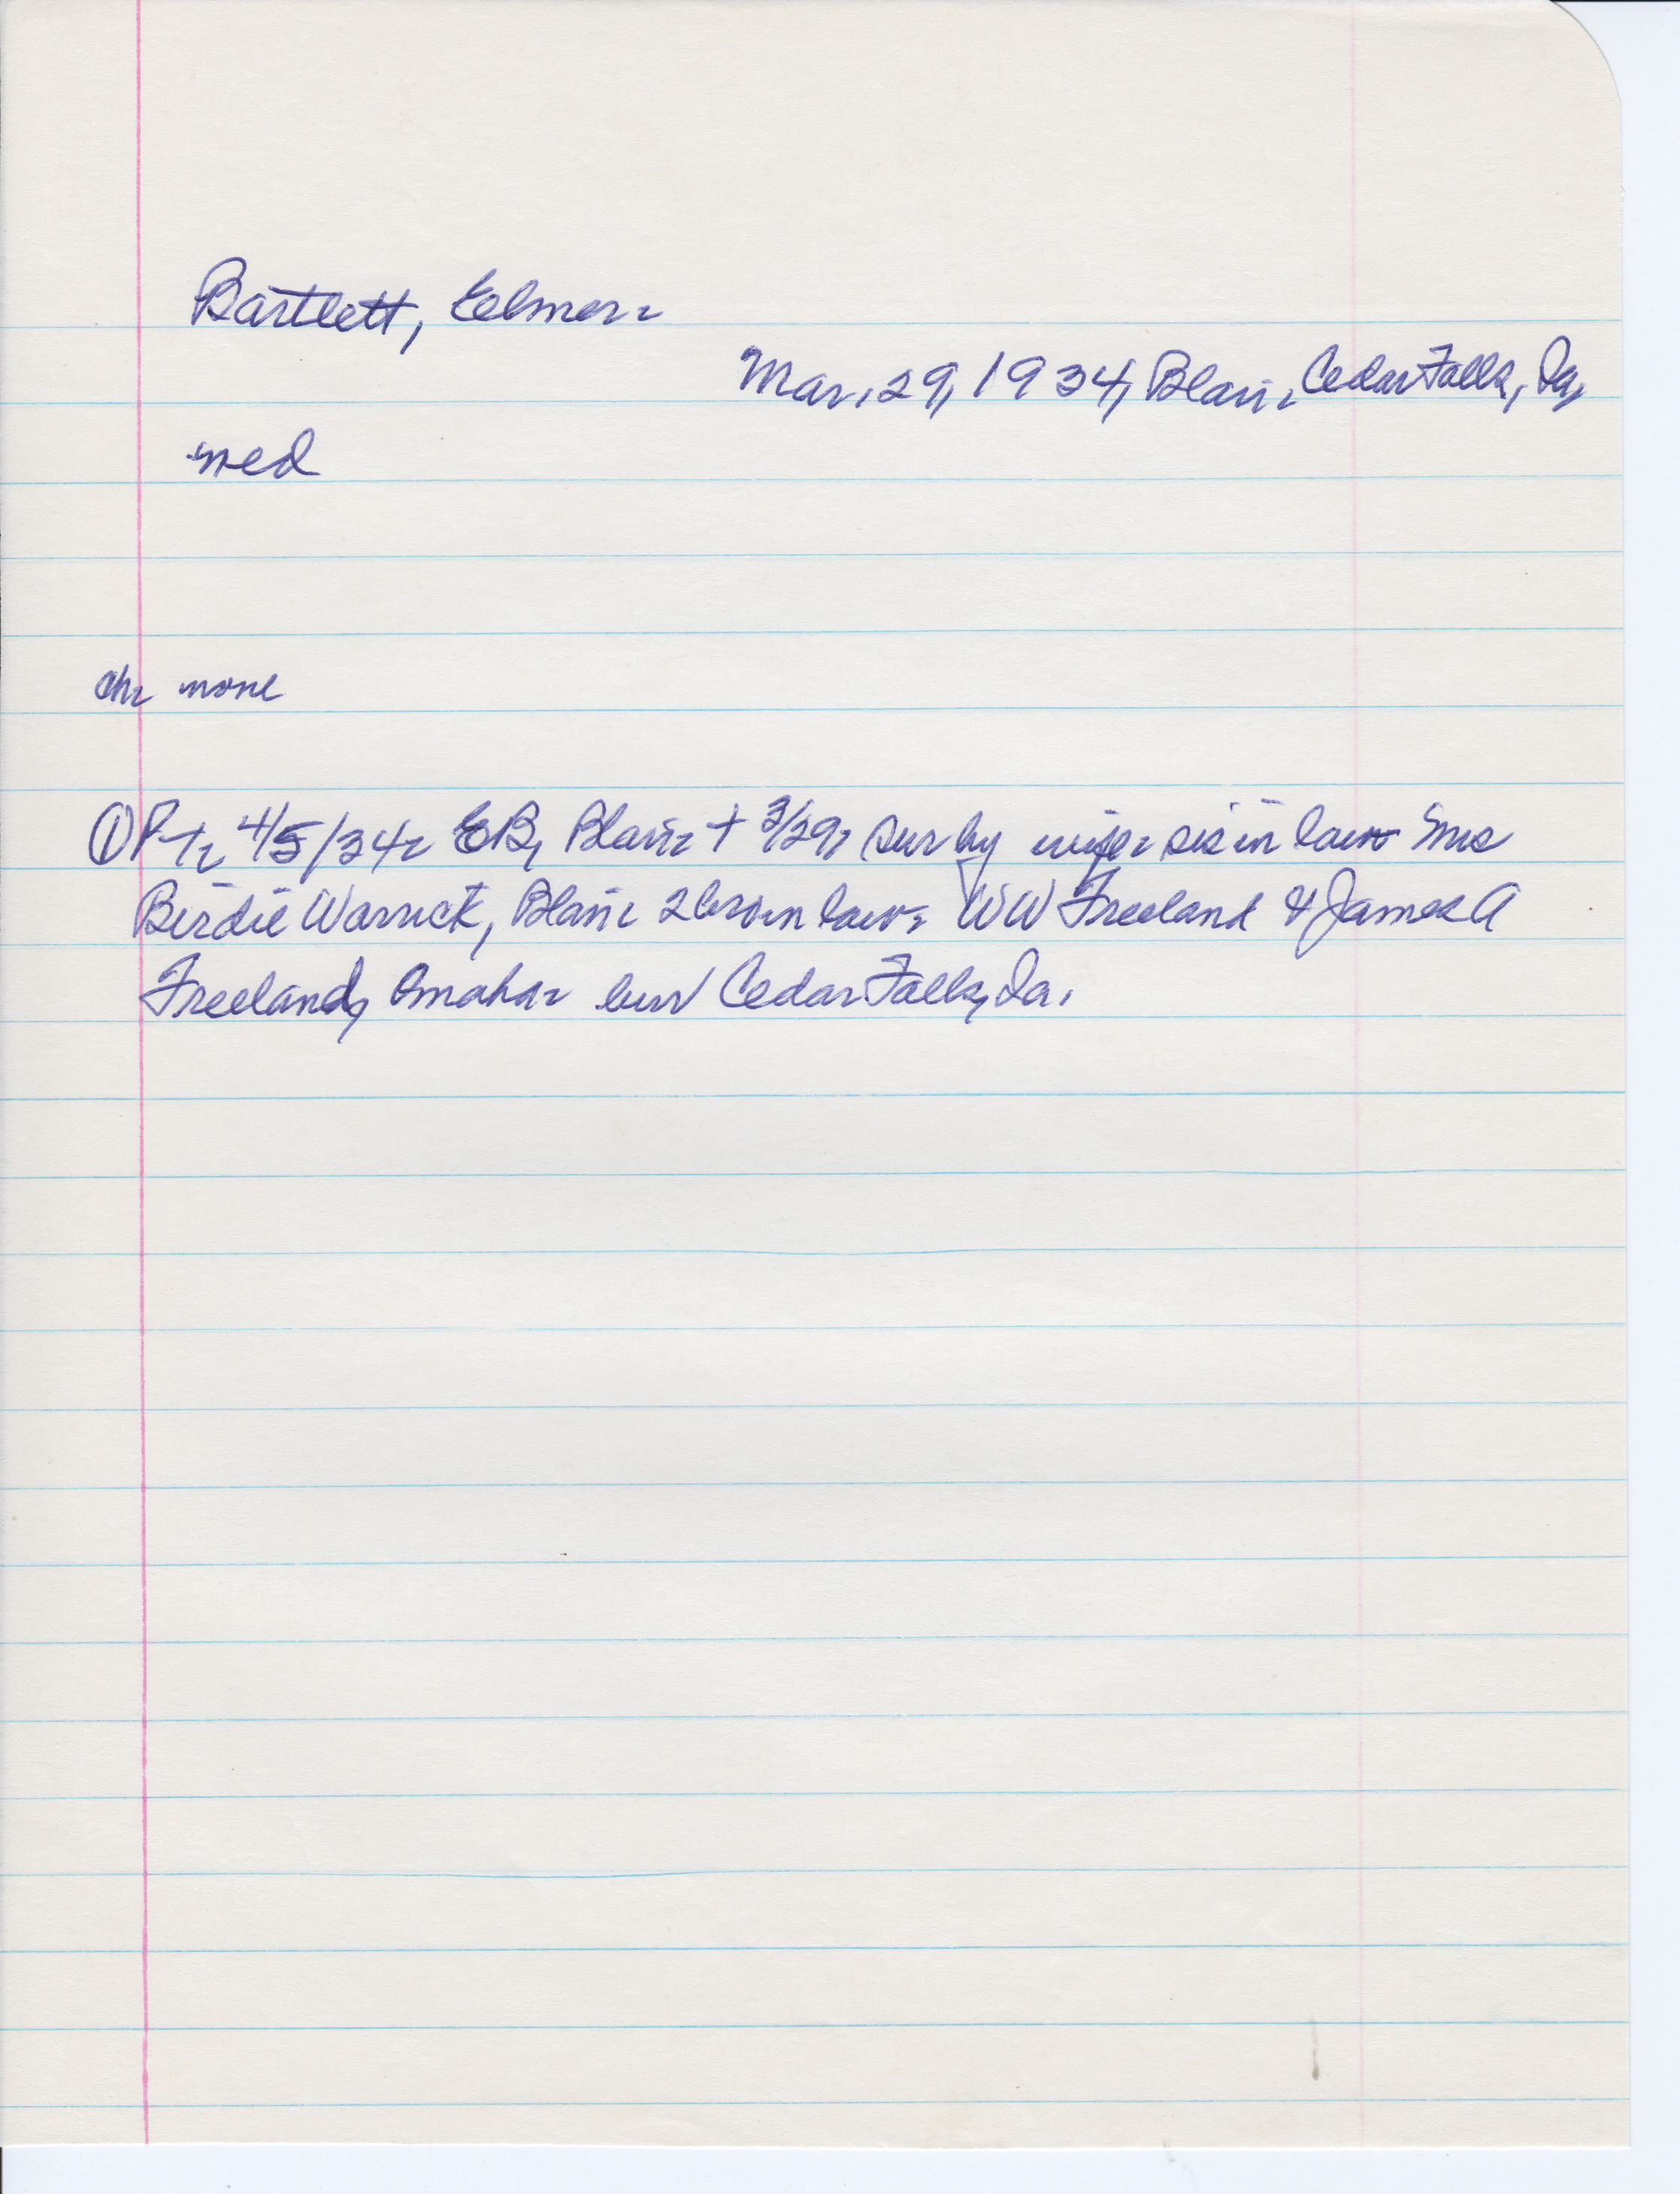 Bartlett, Elmer-
Mar. 29, 1934, Blair, Cedar Falls, Ia.
med
ch- none
① P-T- 4/5/34- EB, Blair- + 3/29, sur by wife- sis in law Mrs
Birdie Warrick, Blair- 2 bro in law- WW Freeland & James A
Freeland, Omaha- bur Cedar Falls, Ia.